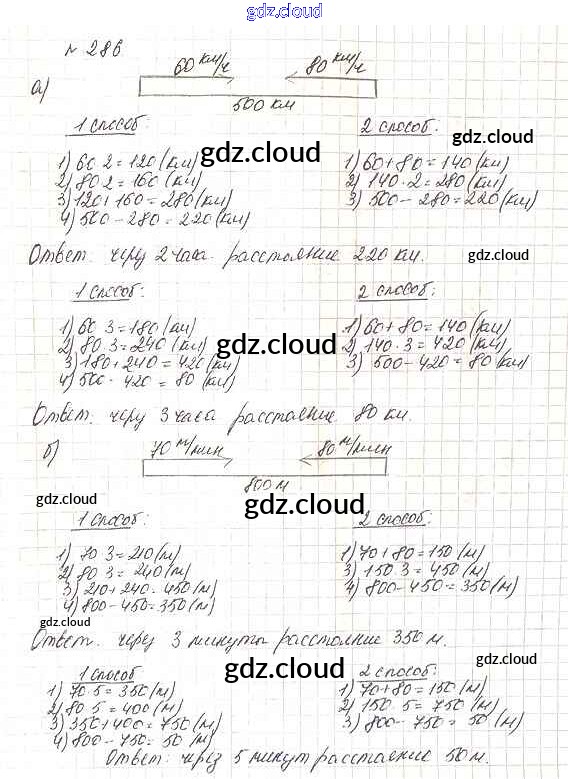 gdz.cloud
№ 286
а) 60 км/ч 80 км/ч
500 км
1 способ: 2 способ:
1) 60 2 = 120 (км) 1) 60 + 80 = 140 (км)
2) 80 2 = 160 (км) 2) 140 · 2 = 280 (км)
3) 120 + 160 = 280 (км) 3) 500 - 280 = 220 (км)
4) 500 - 280 = 220 (км)
Ответ. через 2 часа расстояние 220 км.
1 способ: 2 способ:
1) 60 3 = 180 (км) 1) 60 + 80 = 140 (км)
2) 80 3 = 240 (км) 2) 140 · 3 = 420 (км)
3) 180 + 240 = 420 (км) 3) 500 - 420 = 80 (км)
4) 500 - 420 = 80 (км)
Ответ. через 3 часа расстояние 80 км.
б) 70 м/мин 80 м/мин
800 м
1 способ: 2 способ:
1) 70 3 = 210 (м) 1) 70 + 80 = 150 (м)
2) 80 3 = 240 (м) 3) 150 3 = 450 (м)
3) 210 + 240 = 450 (м) 4) 800 - 450 = 350 (м)
4) 800 - 450 = 350 (м)
Ответ. через 3 минуты расстояние 350 м.
1 способ 2 способ:
1) 70 · 5 = 350 (м) 1) 70 + 80 = 150 (м)
2) 80 5 = 400 (м) 2) 150 · 5 = 750 (м)
3) 350 + 400 = 750 (м) 3) 800 - 750 = 50 (м)
4) 800 - 750 = 50 (м)
Ответ: через 5 минут расстояние 50 м.
gdz.cloud
gdz.cloud
gdz.cloud
gdz.cloud
gdz.cloud
gdz.cloud
gdz.cloud
gdz.cloud
gdz.cloud
gdz.cloud
gdz.cloud
gdz.cloud
gdz.cloud